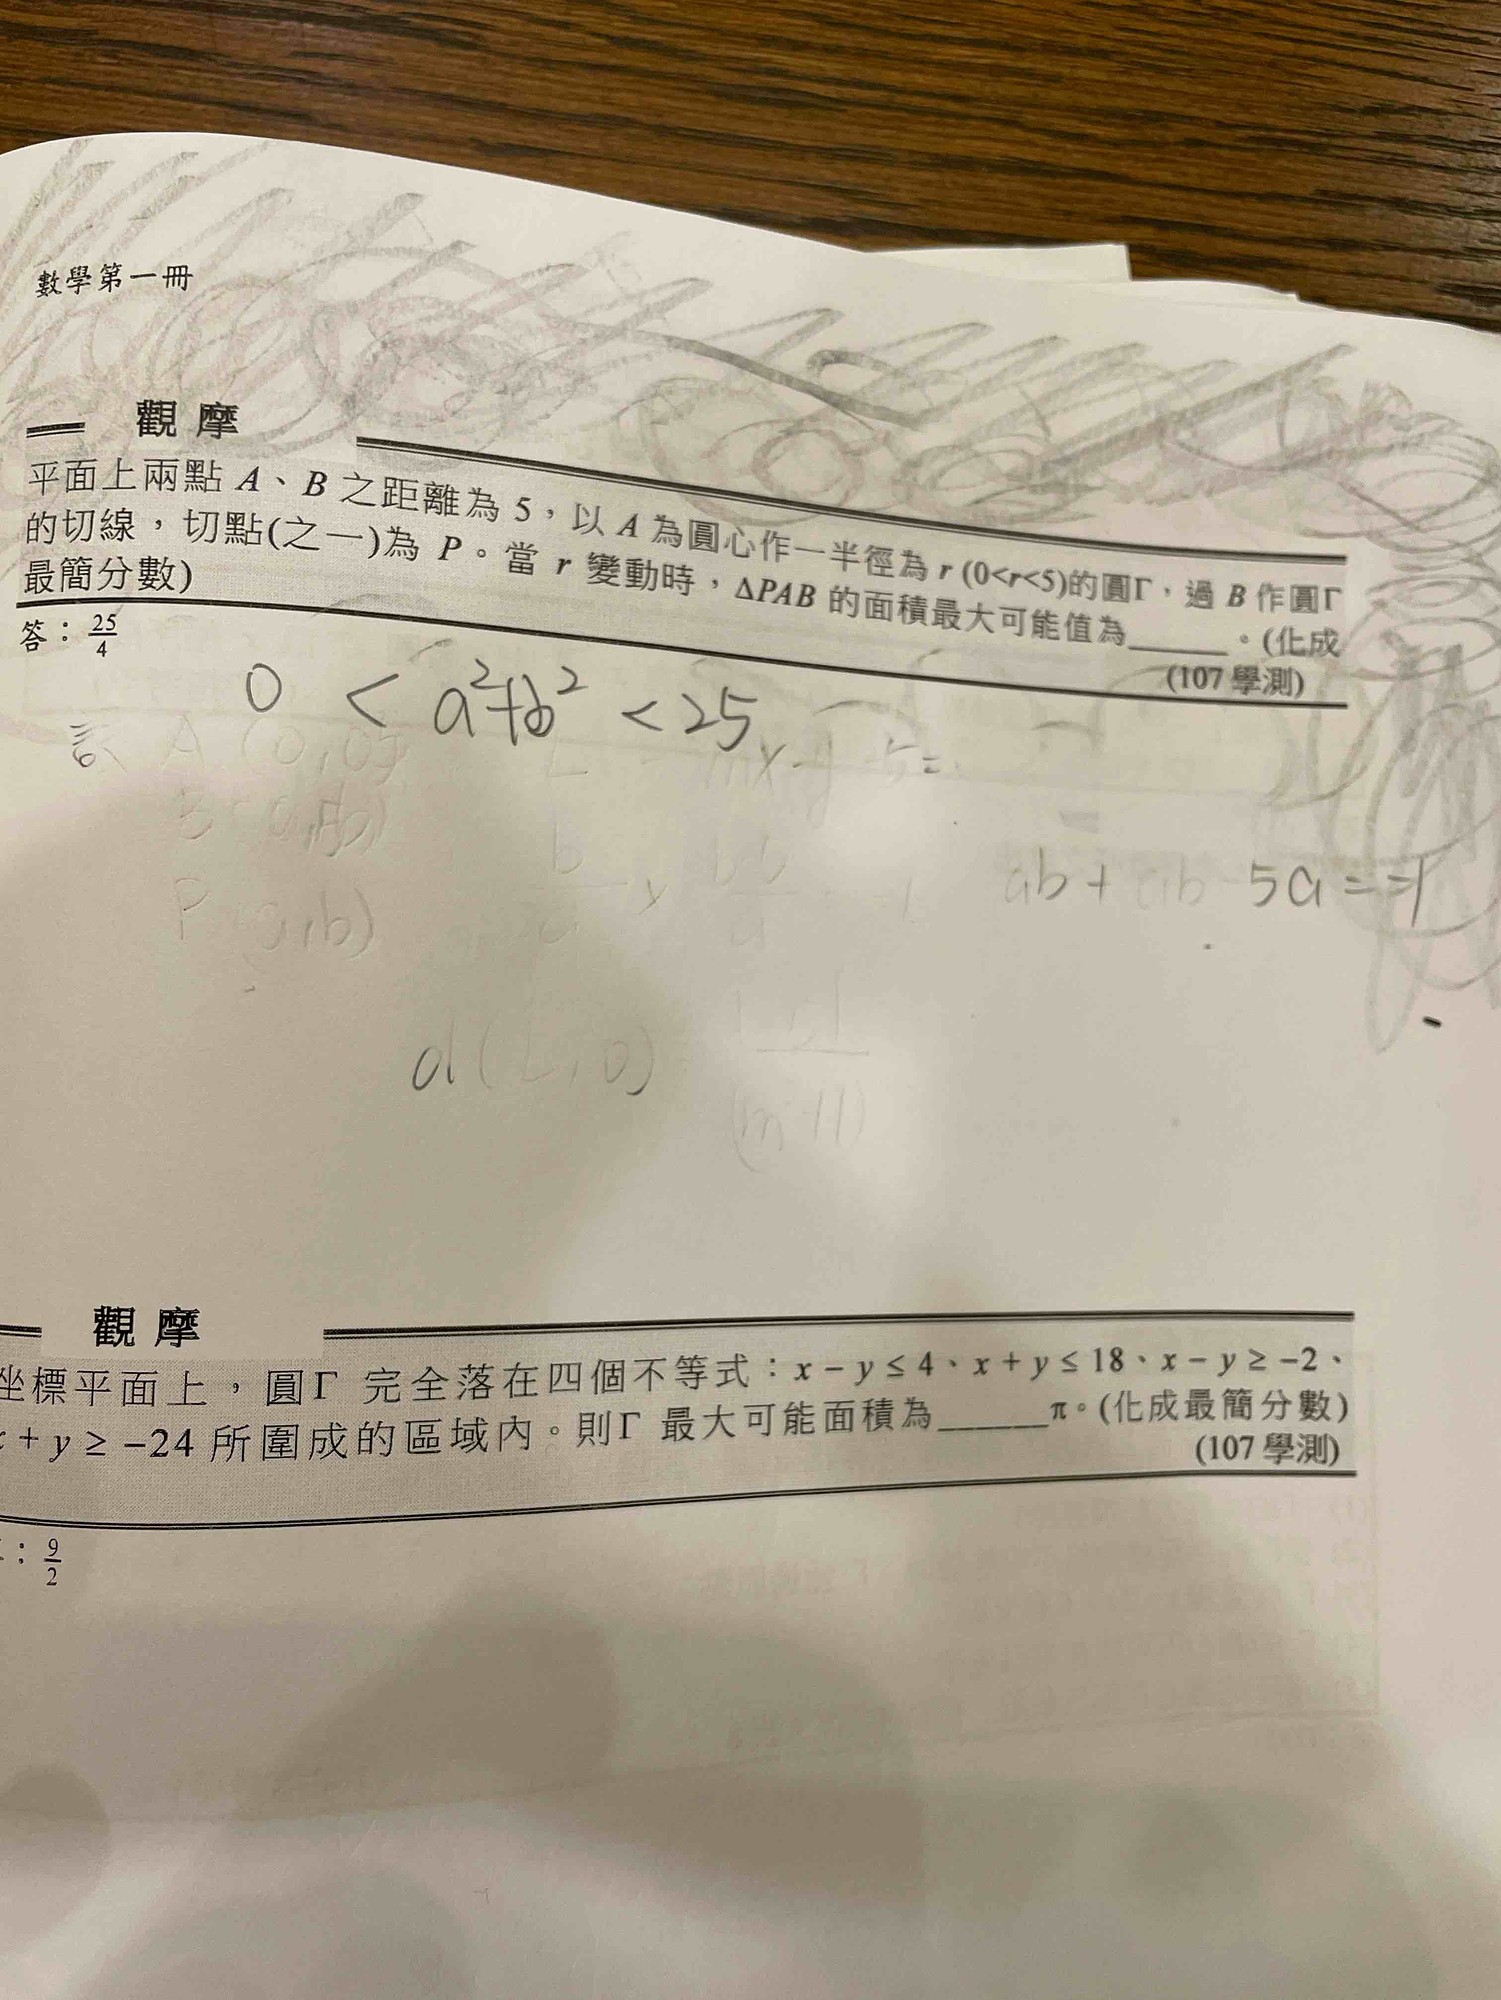 數學第一冊
觀摩
平面上兩點 A、B 之距離為 5，以 A 為圓心作一半徑為 r (0<r<5)的圓Γ，過 B 作圓Γ
的切線，切點(之一)為 P。當 r 變動時，ΔPAB 的面積最大可能值為______。(化成
最簡分數)
(107 學測)
答：25/4
0 < a²+b² < 25
設 A (0,0)
P (a,b)
ab + ab - 5a = -1
d(L,0)
觀摩
坐標平面上，圓Γ 完全落在四個不等式：x − y ≤ 4、x + y ≤ 18、x − y ≥ −2、
x + y ≥ −24 所圍成的區域內。則Γ 最大可能面積為______π。(化成最簡分數)
(107 學測)
：9/2